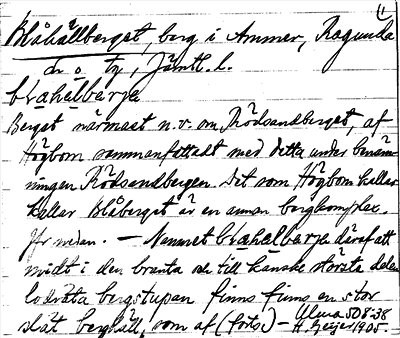 1)
Blåhällberget, berg i Ammer, Ragunda
sn o. tg, Jämtl. l.
blåhälbärje
Berget närmast n.v. om Rödsandberget, af
Högbom sammanfattadt med detta under benäm-
ningen Rödsandbergen. Det som Högbom kallar
kallar Blåberget är en annan bergkomplex.
Jfr nedan. — Namnet blåhälbärje däraf att
midt i den branta och till kanske största delen
lodräta bergstupan finns finns en stor
slät berghäll, som af (forts.) —
Ulma 508:38
H. Geijer 1905.